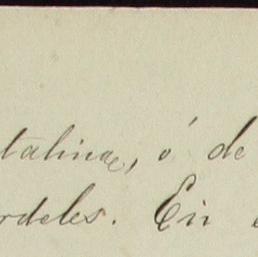 talina, ó de
rdeles. En